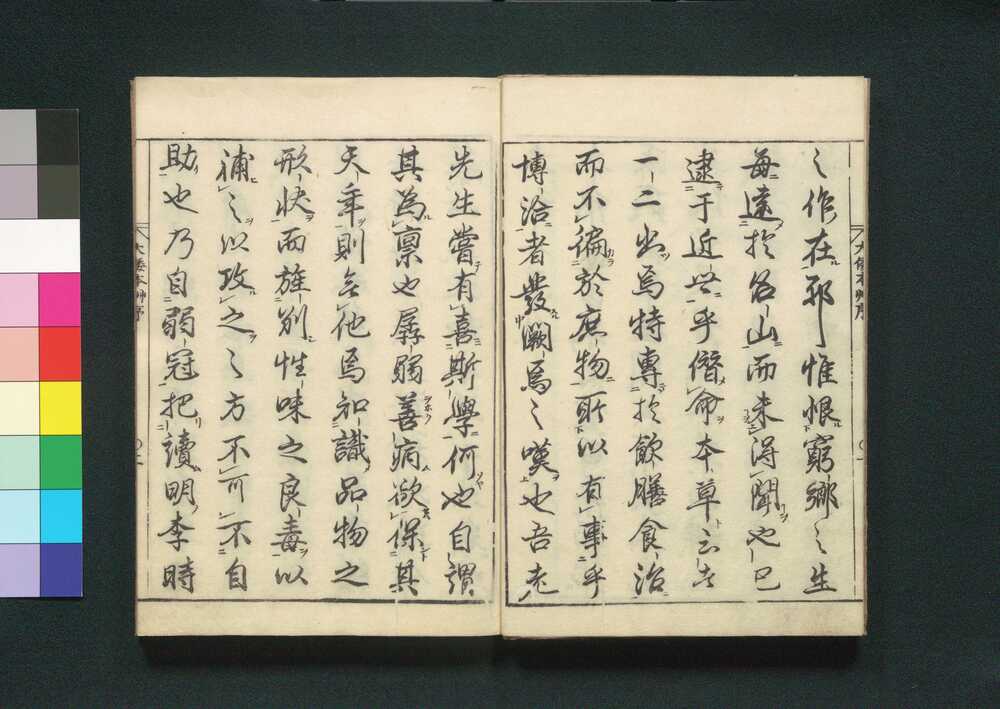 之作在邪惟恨窮鄉之生
每遠於名山而未得聞也已
逮于近世乎僭命本草云者
一二出焉特專於飲膳食治
而不徧於庶物所以有事乎
博洽者發闕焉之嘆也吾老
先生嘗有喜斯學何也自謂
其為稟也孱弱善病欲保其
天年則無他焉知識品物之
形狀而旌別性味之良毒以
補之以攻之之方不可不自
助也乃自弱冠把讀明李時
大倭本艸序